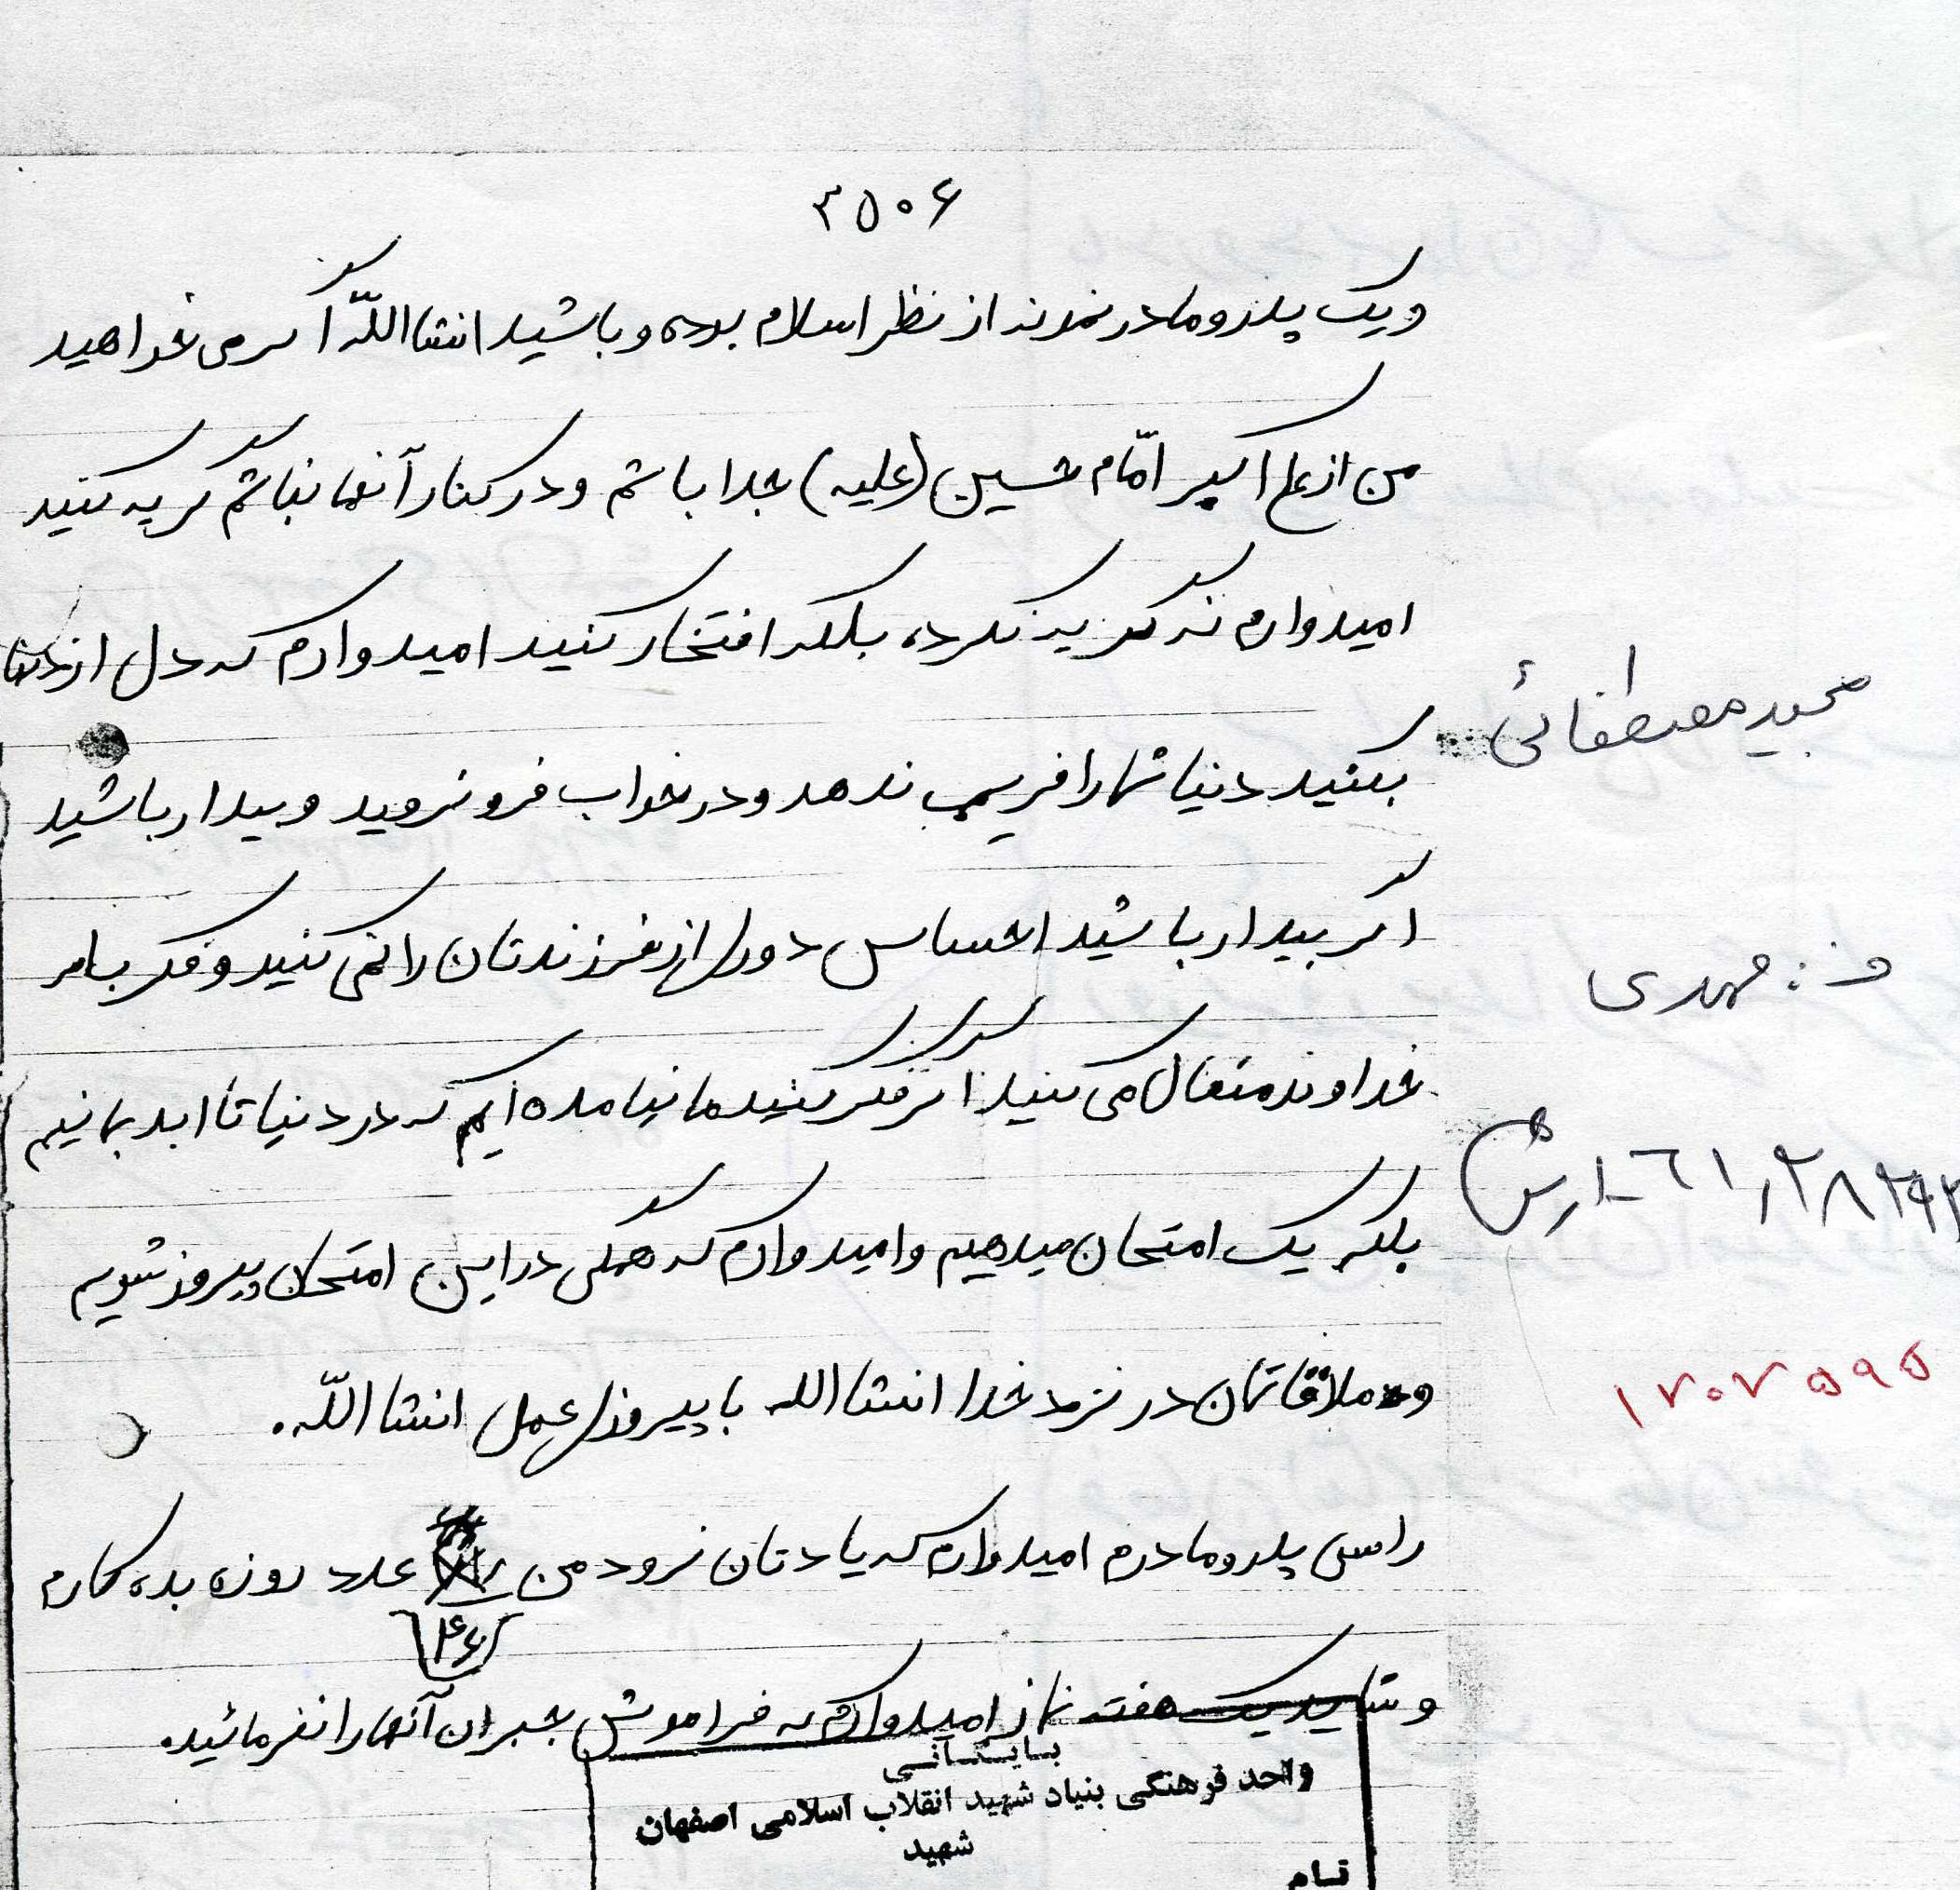 ۳۵۰۶
ویک پدر و مادر نمونه از نظر اسلام بوده و باشید انشااللّه اگر می خواهید
من از علی اکبر امّام حسین (علیه) جدا باشم و در کنار آنها نباشم گریه کنید
امیدوارم نه گریه نکرده بلکه افتخار کنید امیدوارم که دل از دنیا
بکنید دنیا شما را فریب ندهد و در خواب فرو نروید و بیدار باشید
اگر بیدار باشید احساس دوری از فرزندتان را نمی کنید و فکر بامر
خداوند متعال می کنید اگر فکر کنید ما نیامده ایم که در دنیا تا ابد بمانیم
بلکه یک امتحان میدهیم و امیدوارم که همگی در این امتحان پیروز شویم
و ملاقاتمان در نزد خدا انشاالله با پیروزی عمل انشااللّه.
راستی پدر و مادرم امیدوارم که یادتان نرود من عدد روزه بدهکارم
۴۶
و شاید یک هفته نماز امیدوارم که فراموش جبران آنها را نفرمائید.
مجید مصطفائی
ف: مهدی
۱۷۰۷۵۹۵
بایگانی
واحد فرهنگی بنیاد شهید انقلاب اسلامی اصفهان
شهید
نام